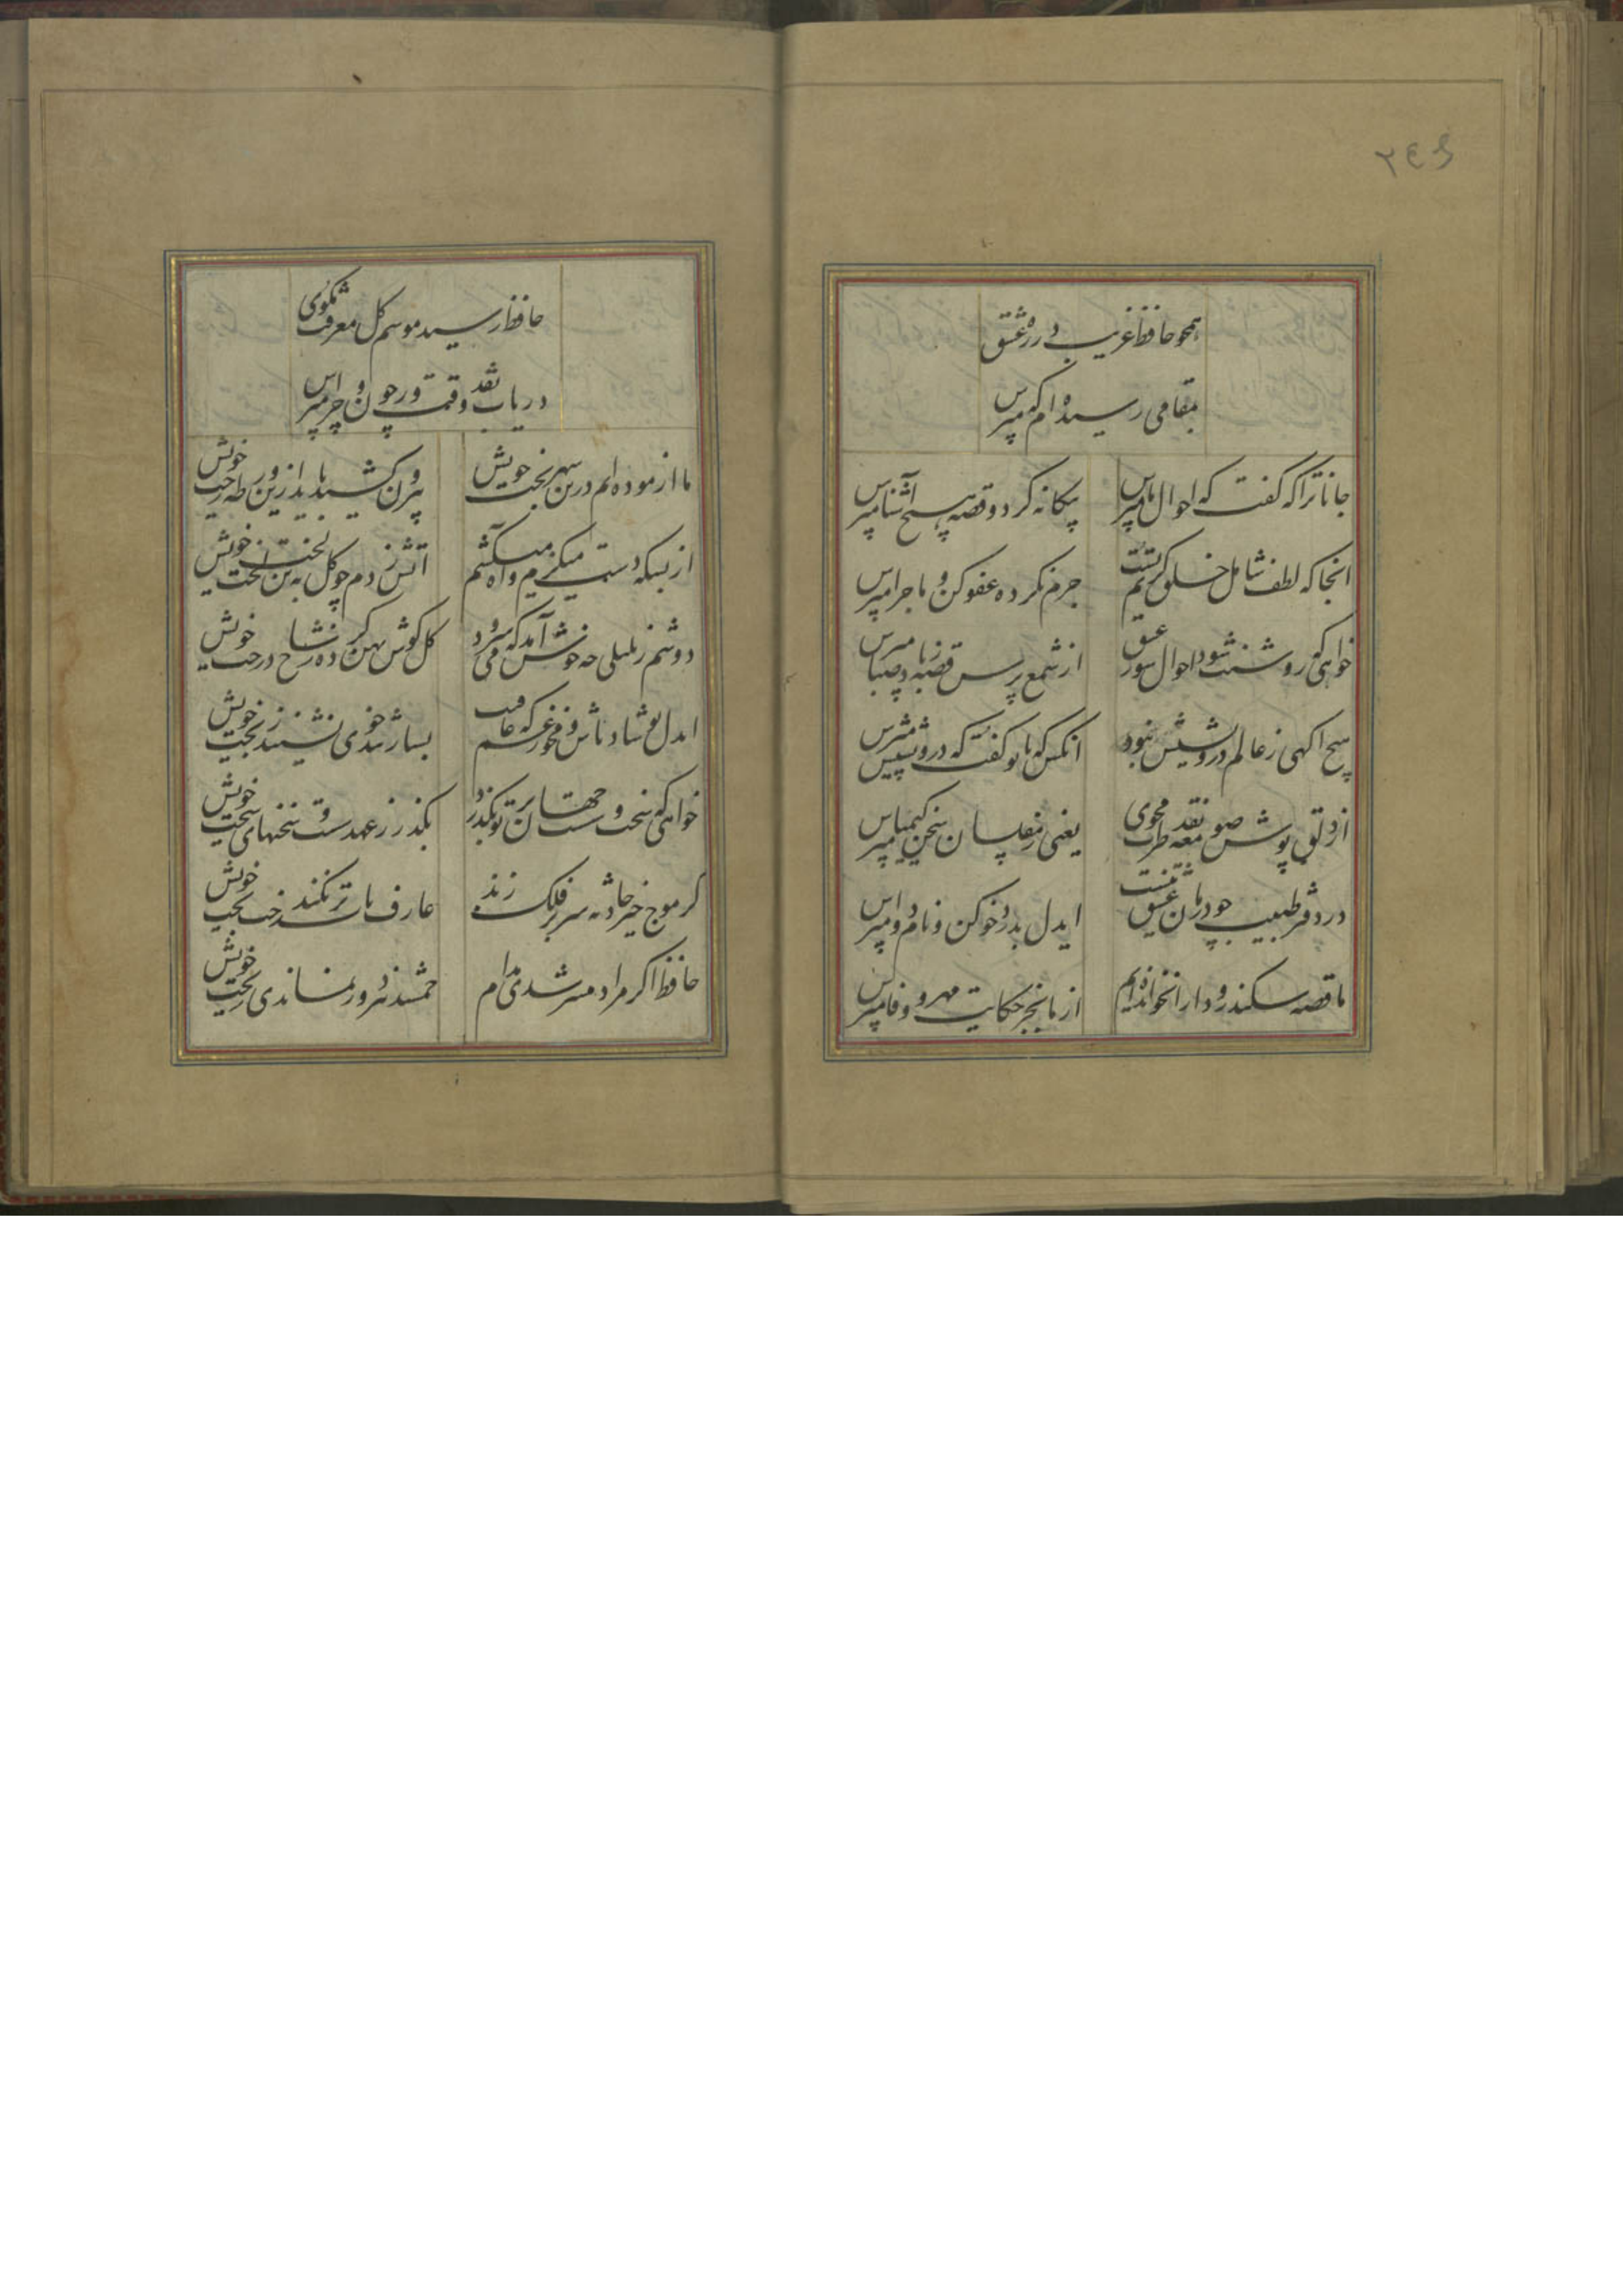 ۲٤۶
همچو حافظ غریب در ره عشق
بمقامی رسیده ام که مپرس
جانا ترا که گفت که احوال ما مپرس
بیکانه کرد و قصه هیچ آشنا مپرس
انجا که لطف شامل خلق کریم تست
جرم نکرده عفو کن و ماجرا مپرس
خواهی که روشنت شود احوال سوز عشق
از شمع پرس قصه ز باد صبا مپرس
هیچ اکهی ز عالم درویشیش نبود
انکس که با تو گفت که درویش را مپرس
از دلق پوش صومعه نقد طرب مجوی
یعنی ز مفلسان سخن کیمیا مپرس
در دفتر طبیب خرد باب عشق نیست
ایدل بدرد خو کن و نام دوا مپرس
ما قصه سکندر و دارا نخوانده ایم
از ما بجز حکایت مهر و وفا مپرس
حافظ رسید موسم کل معرفت مکوی
دریاب نقد وقت و ز چون و چرا مپرس
ما ازموده ایم درین شهر بخت خویش
بیرون کشید باید ازین ورطه رخت خویش
از بسکه دست میکزم و آه میکشم
آتش زدم چو کل به تن لخت لخت خویش
دوشم ز بلبلی چه خوش آمد که می سرود
کل کوش پهن کرده ز شاخ درخت خویش
ایدل تو شاد باش و مخور غم که عاقبت
بسیار تندخوی نشیند ز بخت خویش
خواهی که سخت و سست جهان بر تو بکذرد
بکذر ز عهد سست و سخنهای سخت خویش
کر موج خیز حادثه سر بر فلک زند
عارف بآب تر نکند رخت بخت خویش
حافظ اکر مراد میسر شدی مدام
جمشید نیز دور نماندی ز تخت خویش